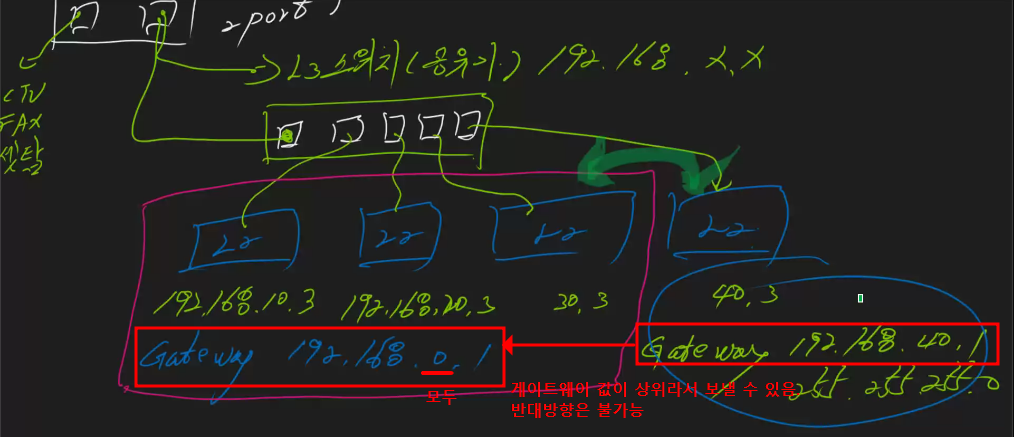 2port
→ L3 스위치(공유기) 192.168.X.X
CTV
FAX
L2 L2 L2 L2
192.168.10.3 192.168.20.3 30.3 40.3
Gateway 192.168.0.1
Gateway 192.168.40.1
255.255.255.0
모두
게이트웨이 값이 상위라서 보낼 수 있음
반대방향은 불가능